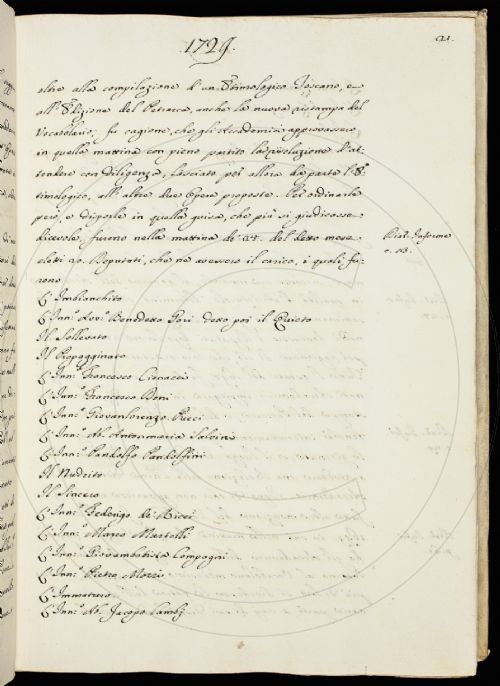 1729.
21.
oltre alla compilazione d'un Etimologico Toscano, e
all'Edizione del Petrarca, anche la nuova ristampa del
Vocabolario; fu cagione, che gli Accademici approvassero
in quella mattina con pieno partito la risoluzione d'at-
tendere con diligenza, lasciato per allora da parte l'E-
timologico, all'altre due Opere proposte. Per ordinarle
però, e disporle in quella guisa, che più si giudicasse
dicevole, furono nella mattina de' 27. del detto mese
eletti 20. Deputati, che ne avessero il carico, i quali fu-
rono
Diar. Infarine
c. 113.
L'Imbianchito
L'Inn.º Avv.º Benedetto Pori detto poi il Quieto
Il Sollevato
Il Propagginato
L'Inn.º Francesco Cionacci
L'Inn.º Francesco Boni
L'Inn.º Giovanlorenzo Pucci
L'Inn.º Ab. Antonmaria Salvini
L'Inn.º Pandolfo Pandolfini
Il Nudrito
Il Sincero
L'Inn.º Federigo de' Ricci
L'Inn.º Marco Martelli
L'Inn.º Giovambatista Compagni
L'Inn.º Pietro Mozzi
L'Immaturo
L'Inn.º Ab. Jacopo Lambj